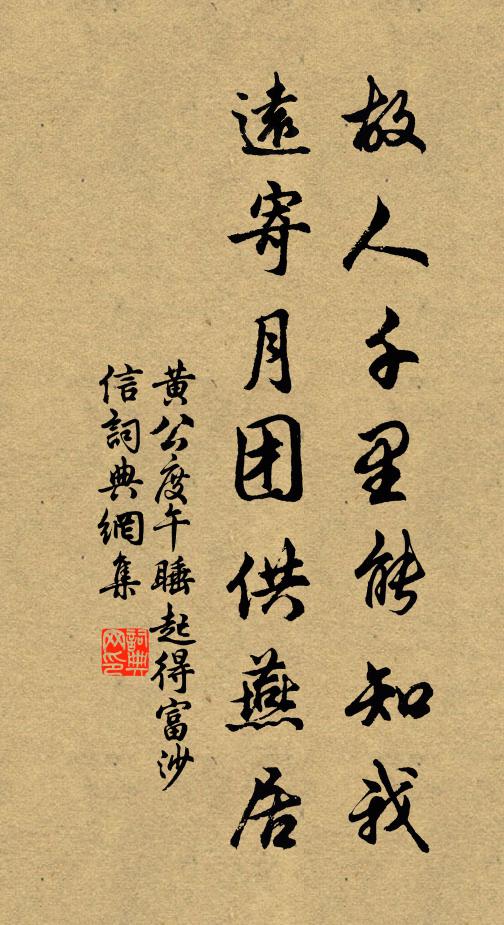 故人千里能知我
遠寄月团供燕居
黃公度午睡起得富沙
信詞典網集
詞典网印